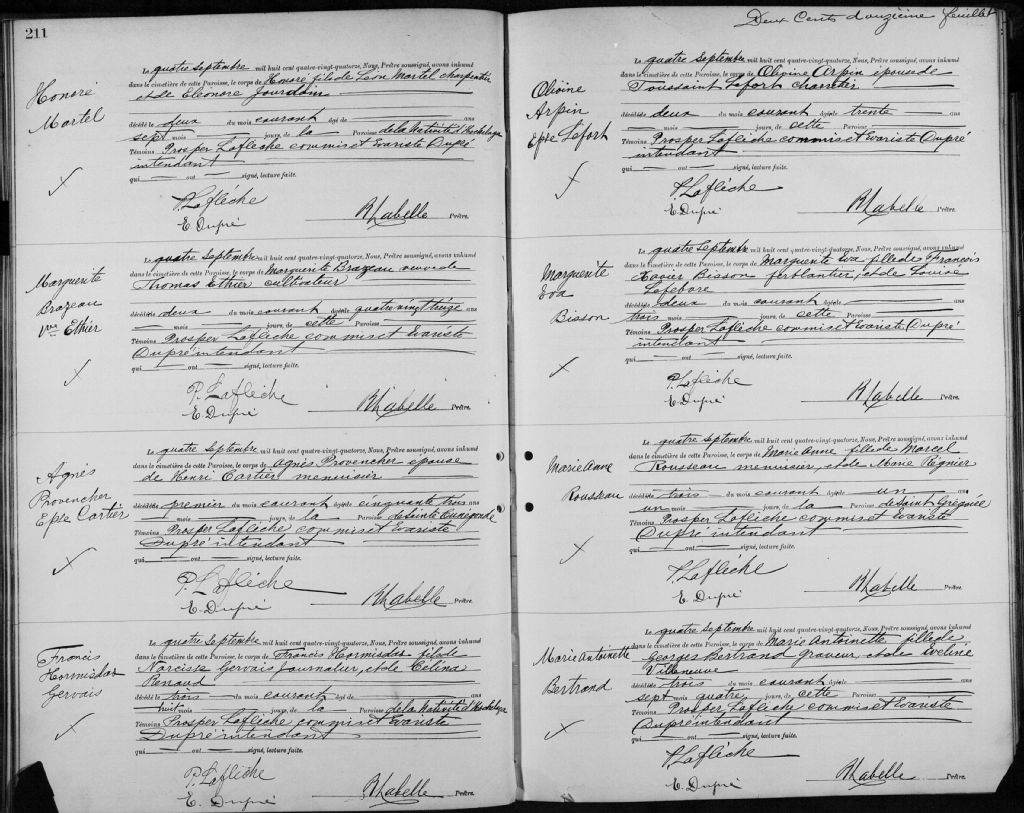 211
Honoré
Martel
Le quatre septembre mil huit cent quatre-vingt-quatorze, Nous, Prêtre soussigné, avons inhumé
dans le cimetière de cette Paroisse, le corps de Honoré fils de Leon Martel charpentier
et de Eleonore Jourdain
décédé le deux du mois courant âgé de ans
sept mois jours, de la Paroisse de la Nativité d'Hochelaga
Témoins Prosper Laflèche commis et Evariste Dupré
intendant
qui ont signé, lecture faite.
P. Laflèche
E. Dupré
Rlabelle Prêtre.
Marguerite
Brazeau
Vve Ethier
Le quatre septembre mil huit cent quatre-vingt-quatorze, Nous, Prêtre soussigné, avons inhumé
dans le cimetière de cette Paroisse, le corps de Marguerite Brazeau veuve de
Thomas Ethier cultivateur
décédé le deux du mois courant âgé de quatre vingt treize ans
mois jours, de cette Paroisse
Témoins Prosper Laflèche commis et Evariste
Dupré intendant
qui ont signé, lecture faite.
P. Laflèche
E. Dupré
Rlabelle Prêtre.
Agnès
Provencher
Epse Cartier
Le quatre septembre mil huit cent quatre-vingt-quatorze, Nous, Prêtre soussigné, avons inhumé
dans le cimetière de cette Paroisse, le corps de Agnès Provencher épouse
de Henri Cartier menuisier
décédé le premier du mois courant âgé de cinquante trois ans
mois jours, de la Paroisse de Sainte Cunégonde
Témoins Prosper Laflèche commis et Evariste
Dupré intendant
qui ont signé, lecture faite.
P. Laflèche
E. Dupré
Rlabelle Prêtre.
Francis
Hormisdas
Gervais
Le quatre septembre mil huit cent quatre-vingt-quatorze, Nous, Prêtre soussigné, avons inhumé
dans le cimetière de cette Paroisse, le corps de Francis Hormisdas fils de
Narcisse Gervais journalier, et de Celina
Renaud
décédé le trois du mois courant âgé de ans
huit mois jours, de la Paroisse de la Nativité d'Hochelaga
Témoins Prosper Laflèche commis et Evariste
Dupré intendant
qui ont signé, lecture faite.
P. Laflèche
E. Dupré
Rlabelle Prêtre.
Deux Cents d'onzième feuillet
Olivine
Arpin
Epse Lafort
Le quatre septembre mil huit cent quatre-vingt-quatorze, Nous, Prêtre soussigné, avons inhumé
dans le cimetière de cette Paroisse, le corps de Olivine Arpin épouse de
Toussaint Lafort charretier
décédé le deux du mois courant âgé de trente ans
mois jours, de cette Paroisse
Témoins Prosper Laflèche commis et Evariste Dupré
intendant
qui ont signé, lecture faite.
P. Laflèche
E. Dupré
Rlabelle Prêtre.
Marguerite
Eva
Bisson
Le quatre septembre mil huit cent quatre-vingt-quatorze, Nous, Prêtre soussigné, avons inhumé
dans le cimetière de cette Paroisse, le corps de Marguerite Eva fille de Francis
Xavier Bisson ferblantier, et de Louise
Lefebvre
décédé le deux du mois courant âgé de ans
trois mois jours, de cette Paroisse
Témoins Prosper Laflèche commis et Evariste Dupré
intendant
qui ont signé, lecture faite.
P. Laflèche
E. Dupré
Rlabelle Prêtre.
Marie Anne
Rousseau
Le quatre septembre mil huit cent quatre-vingt-quatorze, Nous, Prêtre soussigné, avons inhumé
dans le cimetière de cette Paroisse, le corps de Marie Anne fille de Marcel
Rousseau menuisier, et de Marie Regnier
décédé le trois du mois courant âgé de un ans
un mois jours, de la Paroisse de Saint Grégoire
Témoins Prosper Laflèche commis et Evariste
Dupré intendant
qui ont signé, lecture faite.
P. Laflèche
E. Dupré
Rlabelle Prêtre.
Marie Antoinette
Bertrand
Le quatre septembre mil huit cent quatre-vingt-quatorze, Nous, Prêtre soussigné, avons inhumé
dans le cimetière de cette Paroisse, le corps de Marie Antoinette fille de
Georges Bertrand graveur, et de Eveline
Villeneuve
décédé le trois du mois courant âgé de ans
sept mois quatre jours, de cette Paroisse
Témoins Prosper Laflèche commis et Evariste
Dupré intendant
qui ont signé, lecture faite.
P. Laflèche
E. Dupré
Rlabelle Prêtre.